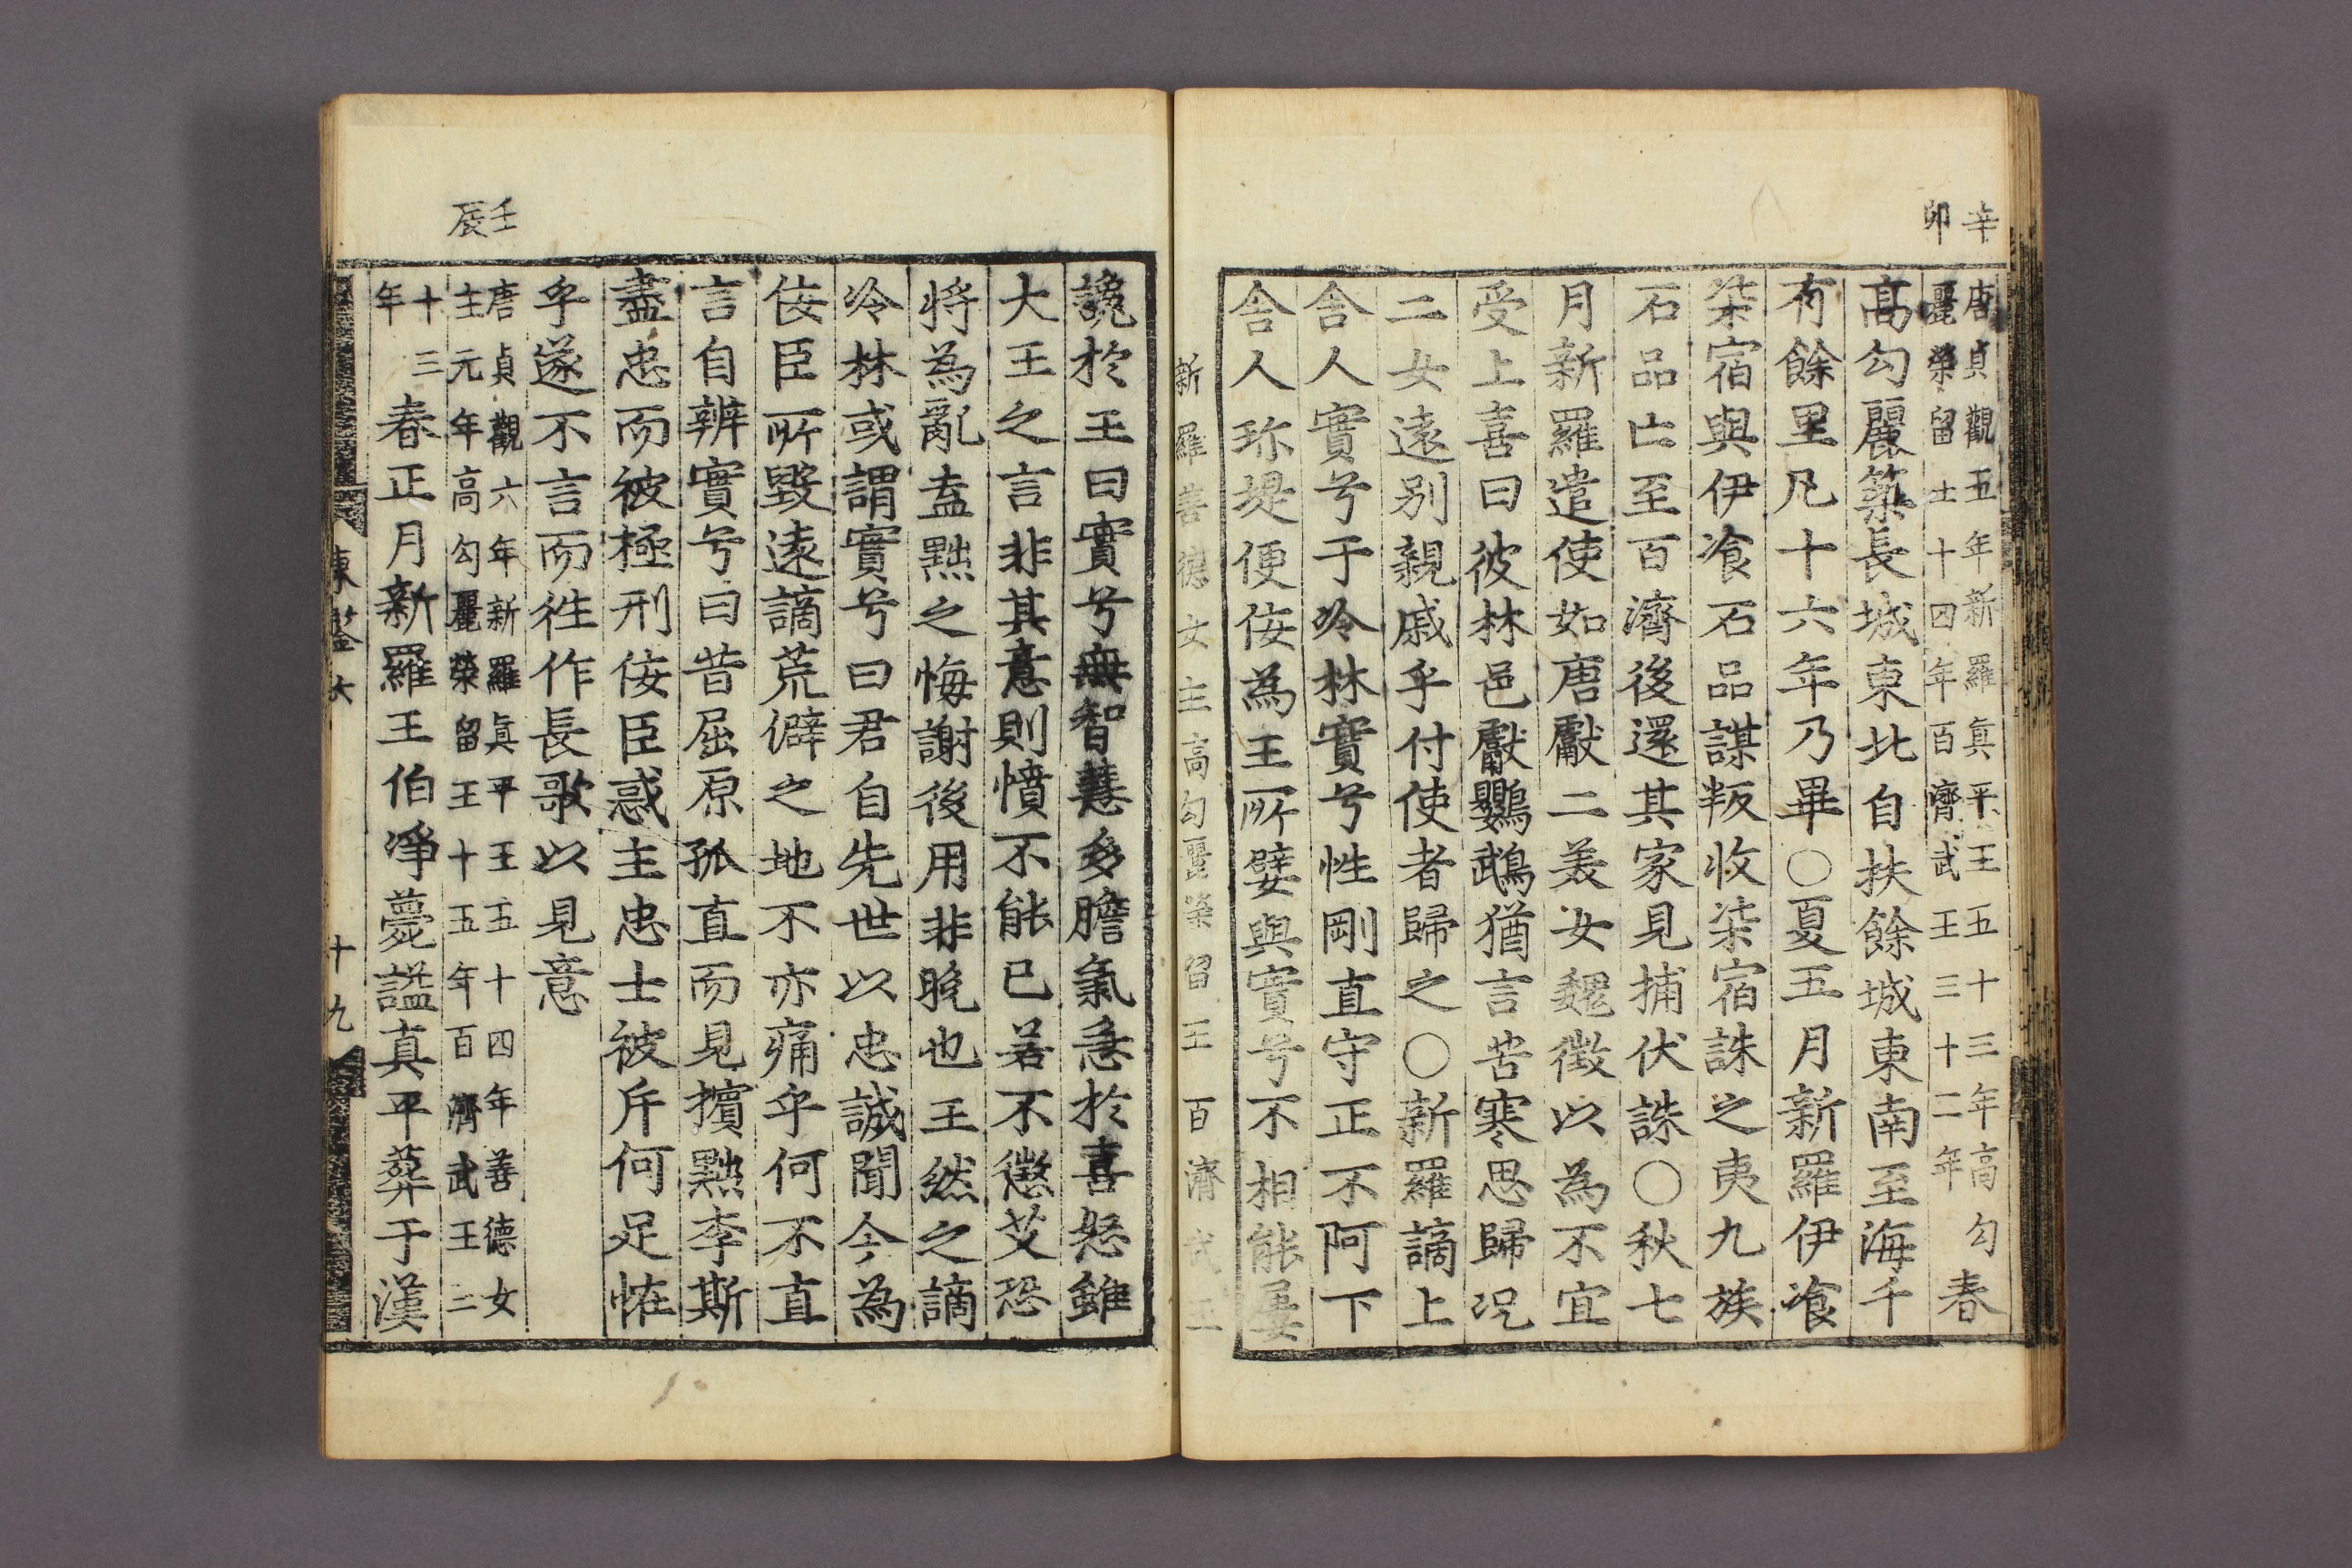 辛卯
唐貞觀五年新羅眞平王五十三年高勾
麗榮留王十四年百濟武王三十二年
春
高勾麗築長城東北自扶餘城東南至海千
有餘里凡十六年乃畢○夏五月新羅伊飡
柒宿與伊飡石品謀叛收柒宿誅之夷九族
石品亡至百濟後還其家見捕伏誅○秋七
月新羅遣使如唐獻二美女魏徵以為不宜
受上喜曰彼林邑獻鸚鵡猶言苦寒思歸况
二女遠別親戚乎付使者歸之○新羅謫上
舍人實兮于冷林實兮性剛直守正不阿下
舍人珎堤便侫為王所嬖與實兮不相能屢
新羅善德女主高勾麗榮留王百濟武王
讒於王曰實兮無智慧多膽氣急於喜怒雖
大王之言非其意則憤不能已若不懲艾恐
將為亂盍黜之悔謝後用非晩也王然之謫
冷林或謂實兮曰君自先世以忠誠聞今為
侫臣所毀遠謫荒僻之地不亦痛乎何不直
言自辨實兮曰昔屈原孤直而見擯黜李斯
盡忠而被極刑侫臣惑主忠士被斥何足恠
乎遂不言而徃作長歌以見意
壬辰
唐貞觀六年新羅眞平王五十四年善德女
主元年高勾麗榮留王十五年百濟武王二
十三
年
春正月新羅王伯凈薨謚真平葬于漢
東鑑六
十九